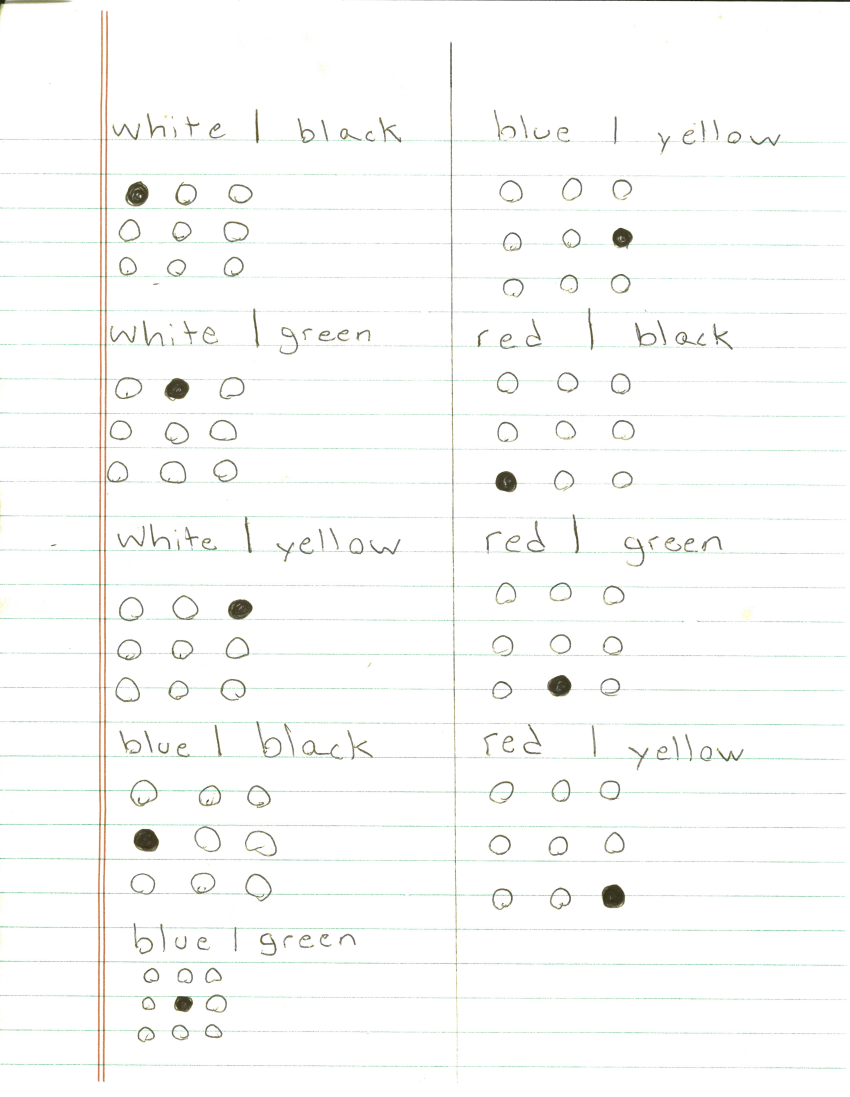 white | black
white | green
white | yellow
blue | black
blue | green
blue | yellow
red | black
red | green
red | yellow